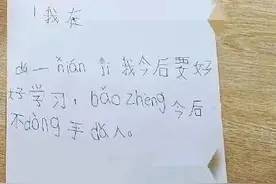 1 我在
da一 nián ji 我今后要好
好学习，bǎo zhèng 今后
不dòng 手 dǎ人。